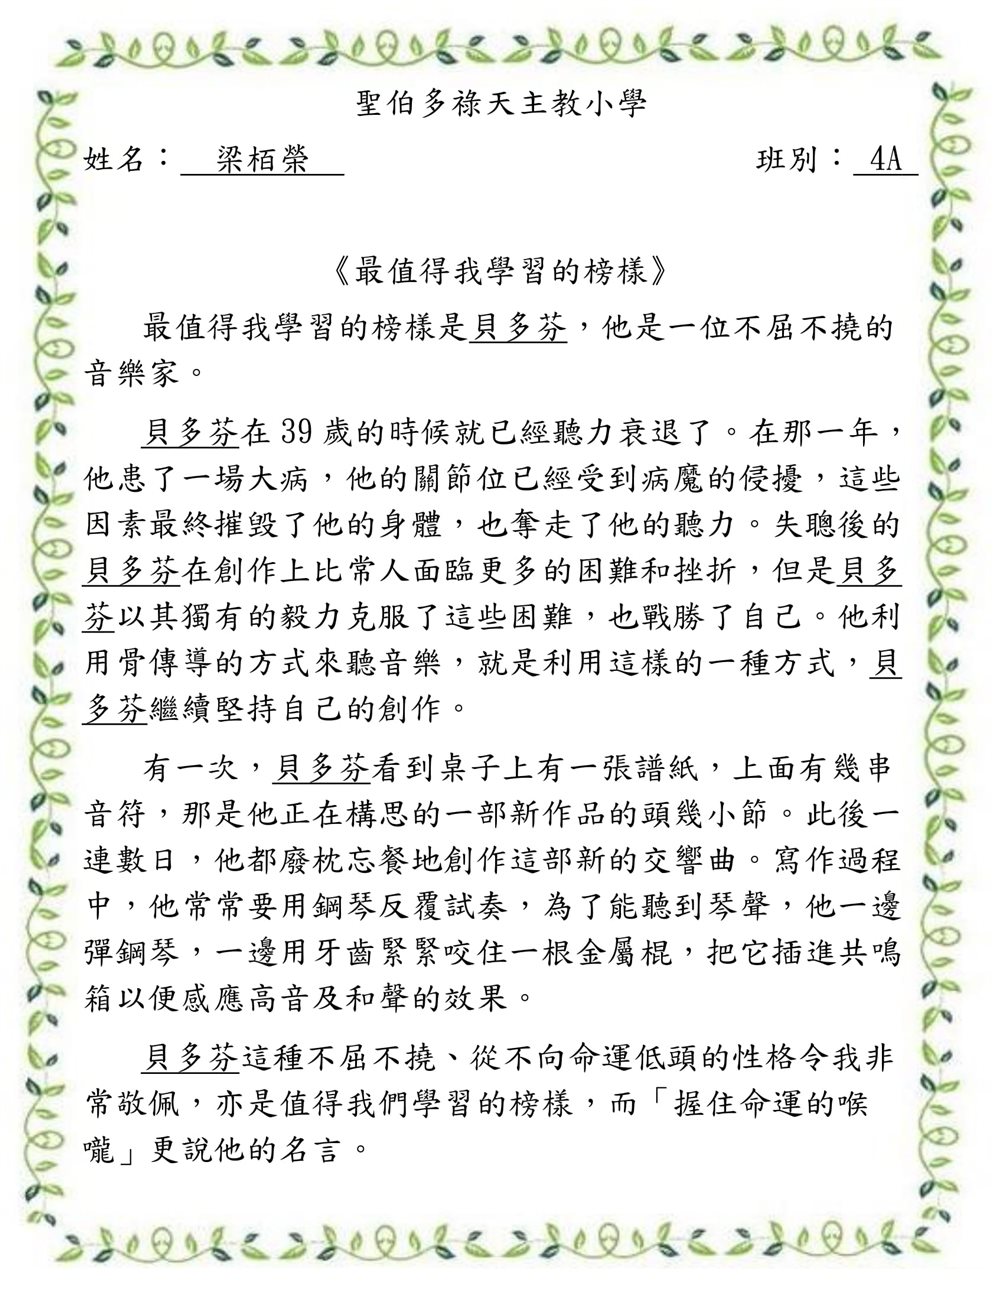 聖伯多祿天主教小學
姓名： 梁栢榮 班別： 4A
《最值得我學習的榜樣》
最值得我學習的榜樣是貝多芬，他是一位不屈不撓的
音樂家。
貝多芬在 39 歲的時候就已經聽力衰退了。在那一年，
他患了一場大病，他的關節位已經受到病魔的侵擾，這些
因素最終摧毀了他的身體，也奪走了他的聽力。失聰後的
貝多芬在創作上比常人面臨更多的困難和挫折，但是貝多
芬以其獨有的毅力克服了這些困難，也戰勝了自己。他利
用骨傳導的方式來聽音樂，就是利用這樣的一種方式，貝
多芬繼續堅持自己的創作。
有一次，貝多芬看到桌子上有一張譜紙，上面有幾串
音符，那是他正在構思的一部新作品的頭幾小節。此後一
連數日，他都廢枕忘餐地創作這部新的交響曲。寫作過程
中，他常常要用鋼琴反覆試奏，為了能聽到琴聲，他一邊
彈鋼琴，一邊用牙齒緊緊咬住一根金屬棍，把它插進共鳴
箱以便感應高音及和聲的效果。
貝多芬這種不屈不撓、從不向命運低頭的性格令我非
常敬佩，亦是值得我們學習的榜樣，而「握住命運的喉
嚨」更說他的名言。